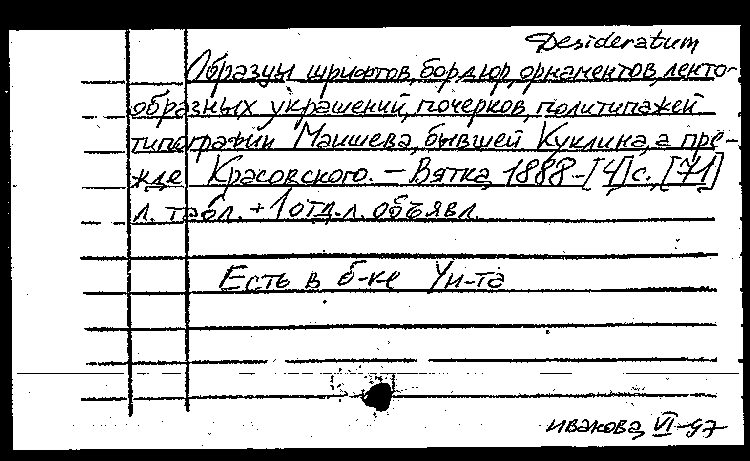 Desideratum
Образцы шрифтов, бордюр, орнаментов, ленто-
образных украшений, почерков, политипажей
типографии Маишева, бывшей Куклина, а пре-
жде Красовского. – Вятка, 1888 – [4] с., [71]
л. табл. + 1 отд. л. объявл.
Есть в б-ке Ун-та
Ивакова, VI-97